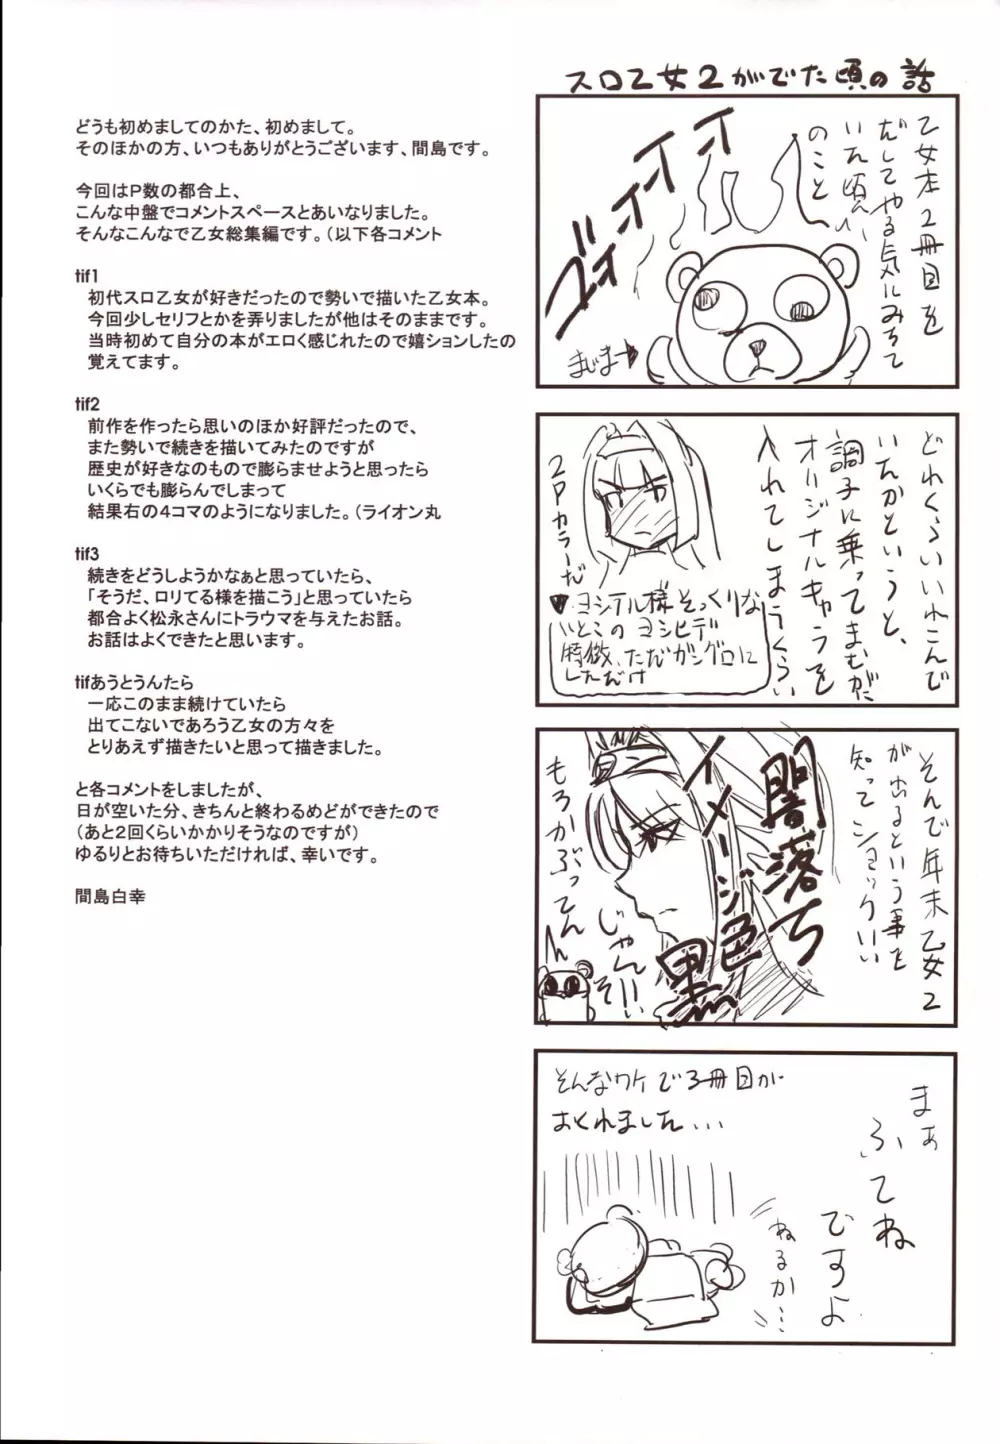 どうも初めましてのかた、初めまして。
そのほかの方、いつもありがとうございます、間島です。
今回はP数の都合上、
こんな中盤でコメントスペースとあいなりました。
そんなこんなで乙女総集編です。(以下各コメント
tif1
初代スロ乙女が好きだったので勢いで描いた乙女本。
今回少しセリフとかを弄りましたが他はそのままです。
当時初めて自分の本がエロく感じれたので嬉ションしたの
覚えてます。
tif2
前作を作ったら思いのほか好評だったので、
また勢いで続きを描いてみたのですが
歴史が好きなのもので膨らませようと思ったら
いくらでも膨らんでしまって
結果右の4コマのようになりました。(ライオン丸
tif3
続きをどうしようかなぁと思っていたら、
「そうだ、ロリてる様を描こう」と思っていたら
都合よく松永さんにトラウマを与えたお話。
お話はよくできたと思います。
tifあうとうんたら
一応このまま続けていたら
出てこないであろう乙女の方々を
とりあえず描きたいと思って描きました。
と各コメントをしましたが、
日が空いた分、きちんと終わるめどができたので
(あと2回くらいかかりそうなのですが)
ゆるりとお待ちいただければ、幸いです。
間島白幸
スロ乙女2がでた頃の話
乙女本2冊目を
だしてやる気にみちて
いた頃
のこと
まじまー
どれくらいいれこんで
いたかというと、
調子に乗ってまむがに
オリジナルキャラを
入れてしまうくらい
2Pカラーだ
ヨシテル様そっくりな
いとこのヨシヒデ
特徴、ただガングロに
しただけ
そんで年末乙女2
が出るという事を
知ってショックいい
闇落ち
イメージ色
黒
もろかぶってん
じゃん
そんなワケで3冊目が
おくれました...
まぁ
ふてね
ですよ
ねるか...